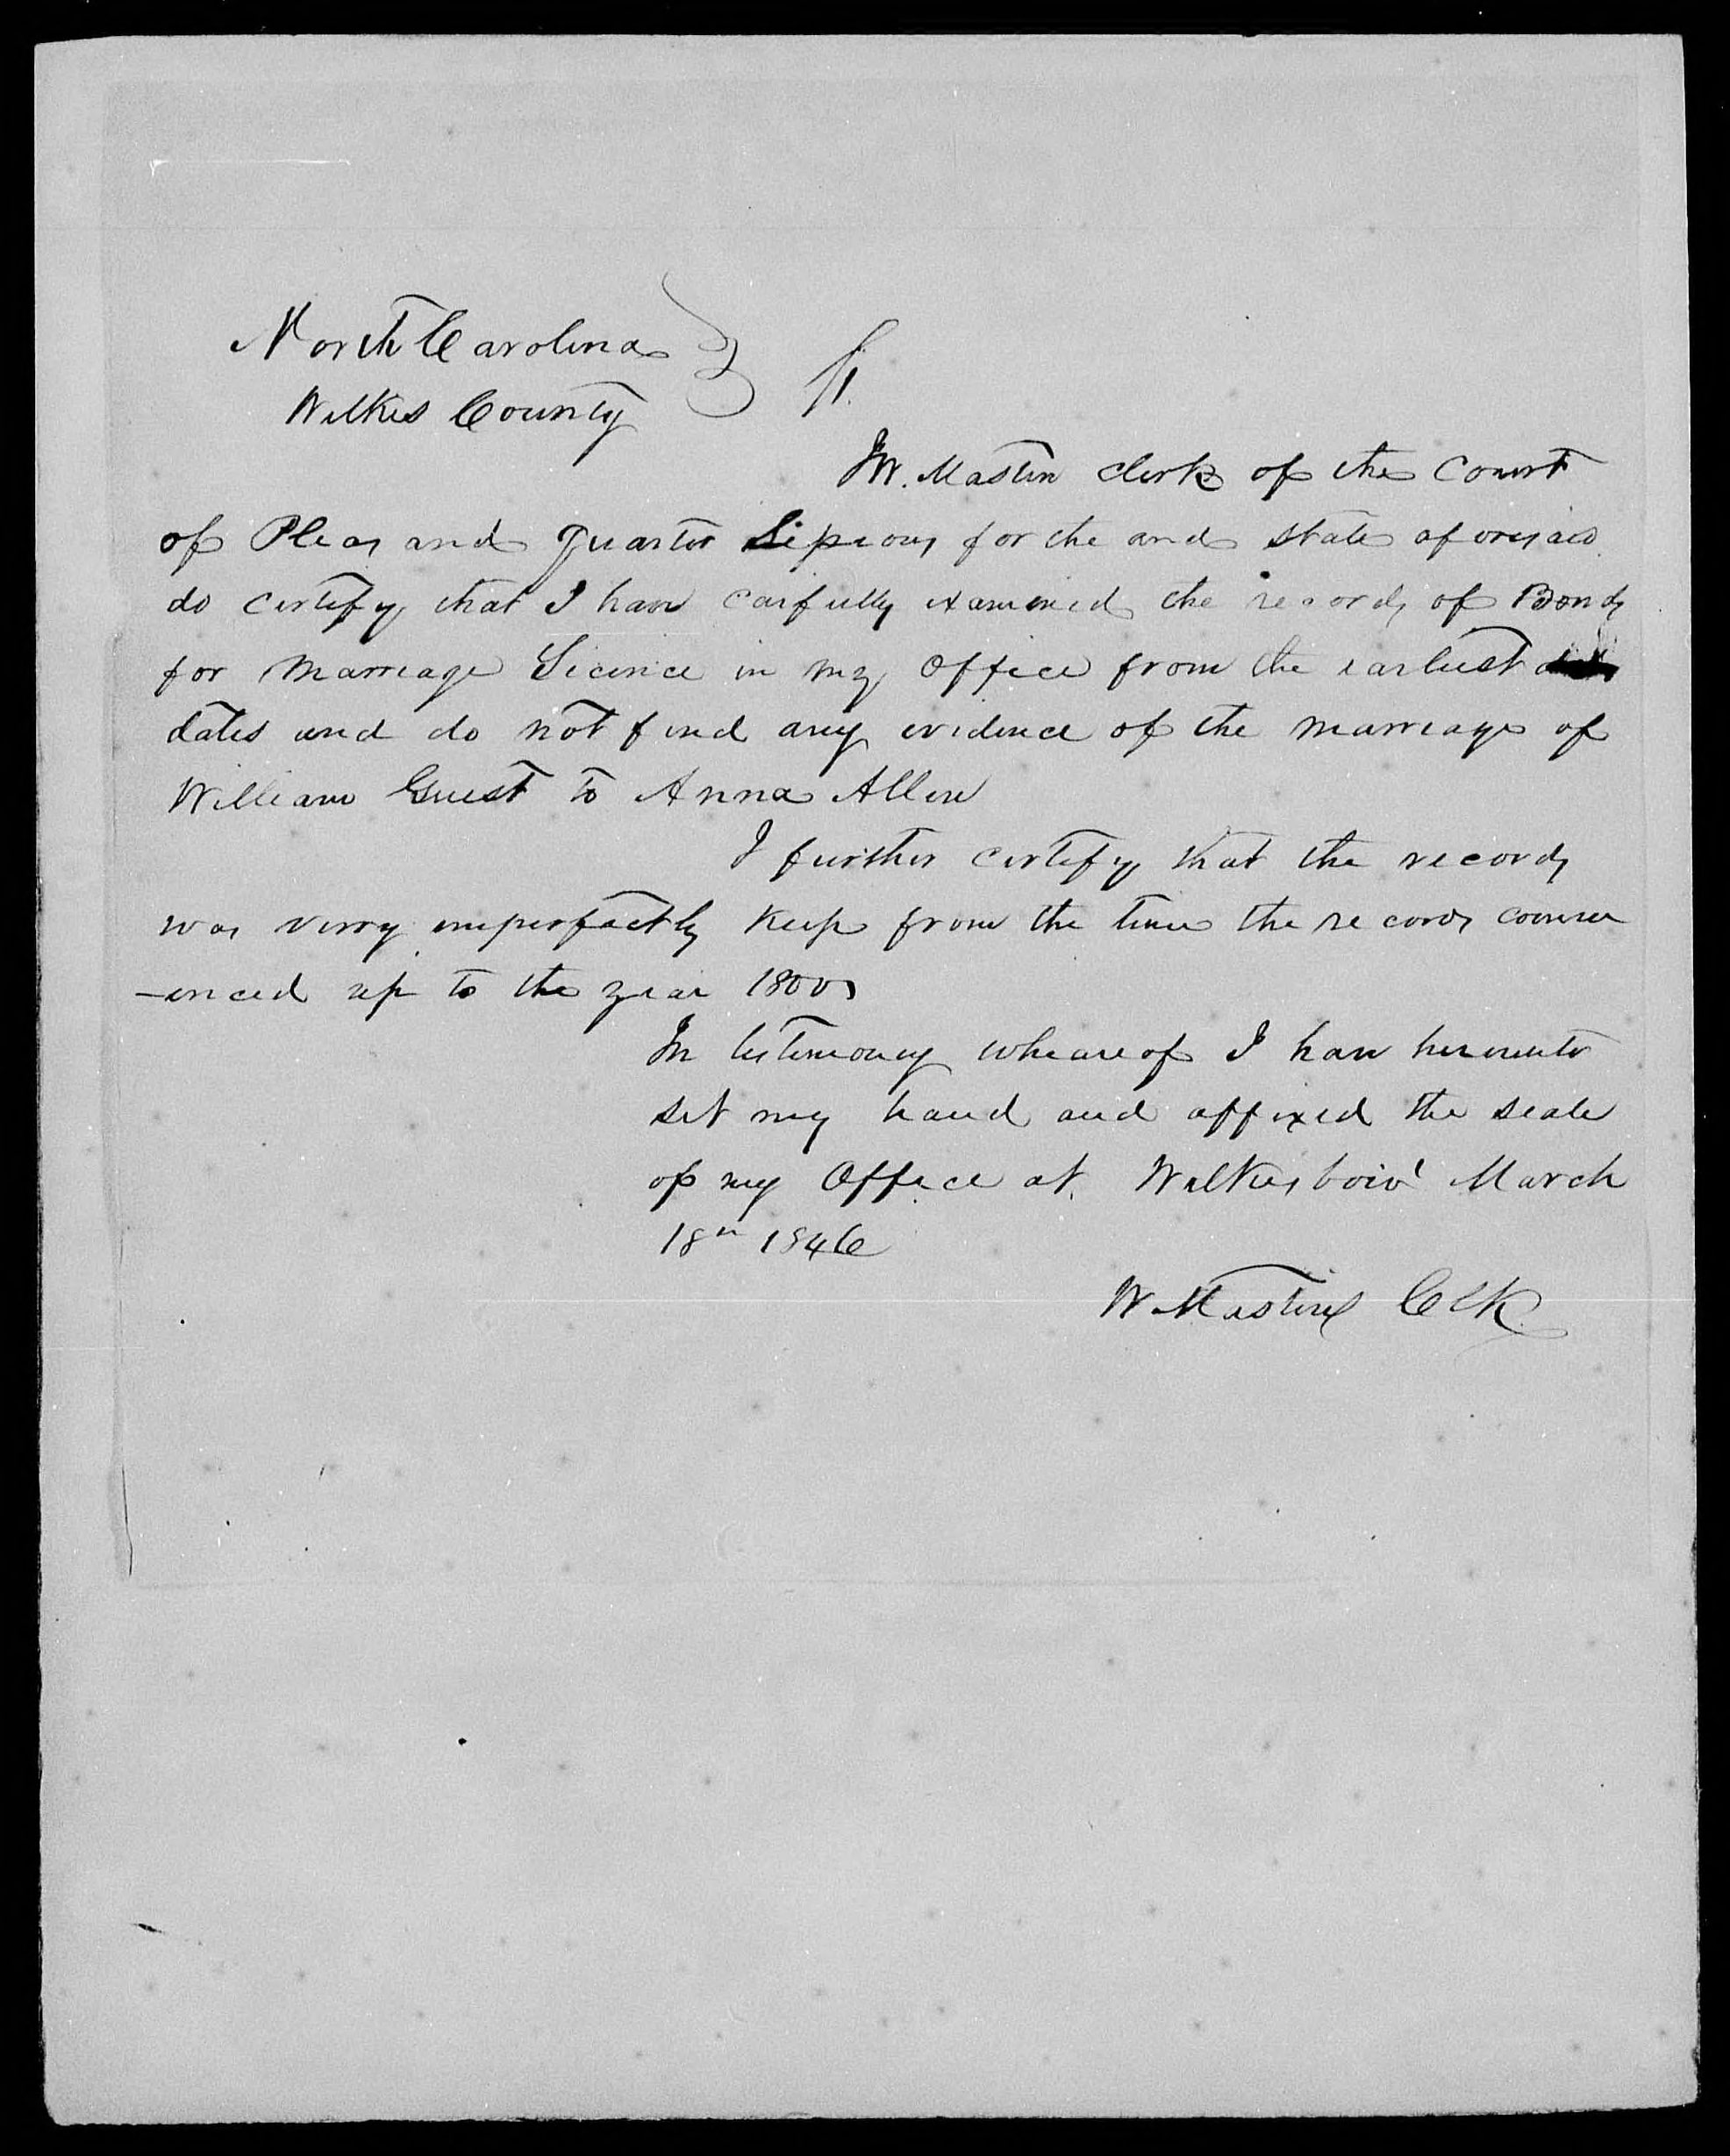 North Carolina
Wilkes County } Ss.
I W. Mastin clerk of the Court
of Pleas and Quarter Sessions for the and State aforesaid
do certify that I have carfully examined the records of Bonds
for Marriage Licence in my Office from the earliest
dates and do not find any evidence of the marriage of
William Guest to Anna Allen
I further certify that the records
was verry imperfectly keep from the time the records comm
-enced up to the year 1800
In testimony wheareof I have hereunto
set my hand and affixed the seale
of my Office at Wilkesboro' March
18th 1846
W Mastin Clk